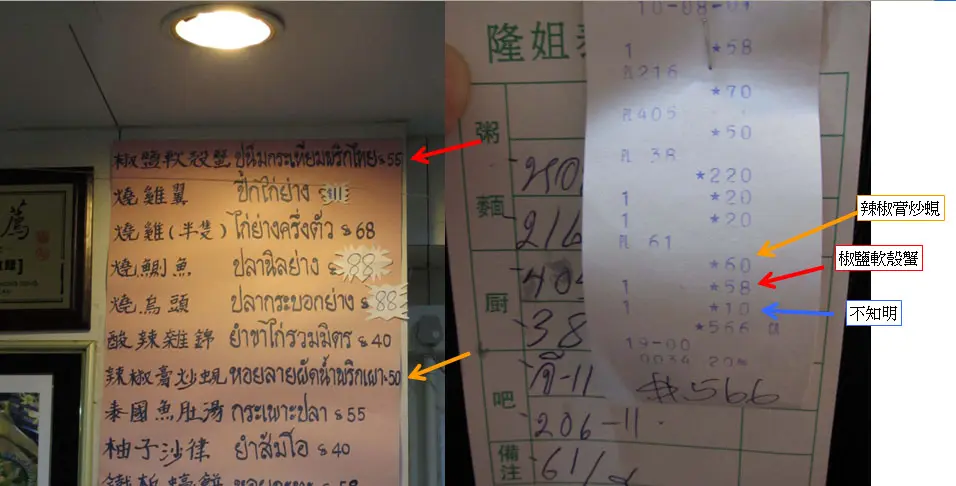 薦
椒鹽軟殼蟹 ปูนิ่มกระเทียมพริกไทย $55
燒雞翼 ปีกไก่ย่าง
燒雞(半隻) ไก่ย่างครึ่งตัว $68
燒鯽魚 ปลานิลย่าง $88
燒烏頭 ปลากระบอกย่าง $88
酸辣雜錦 ยำขาไก่รวมมิตร $40
辣椒膏炒蜆 หอยลายผัดน้ำพริกเผา-50
泰國魚肚湯 กระเพาะปลา $55
柚子沙律 ยำส้มโอ $40
隆姐
粥
麵
216
厨
38
吧
206-11
備注
61/
1 *58
PL216
*70
PL405
*50
PL 38
*220
1 *20
1 *20
PL 61
*60
1 *58
1 *10
*566
19-00
$566
辣椒膏炒蜆
椒鹽軟殼蟹
不知明